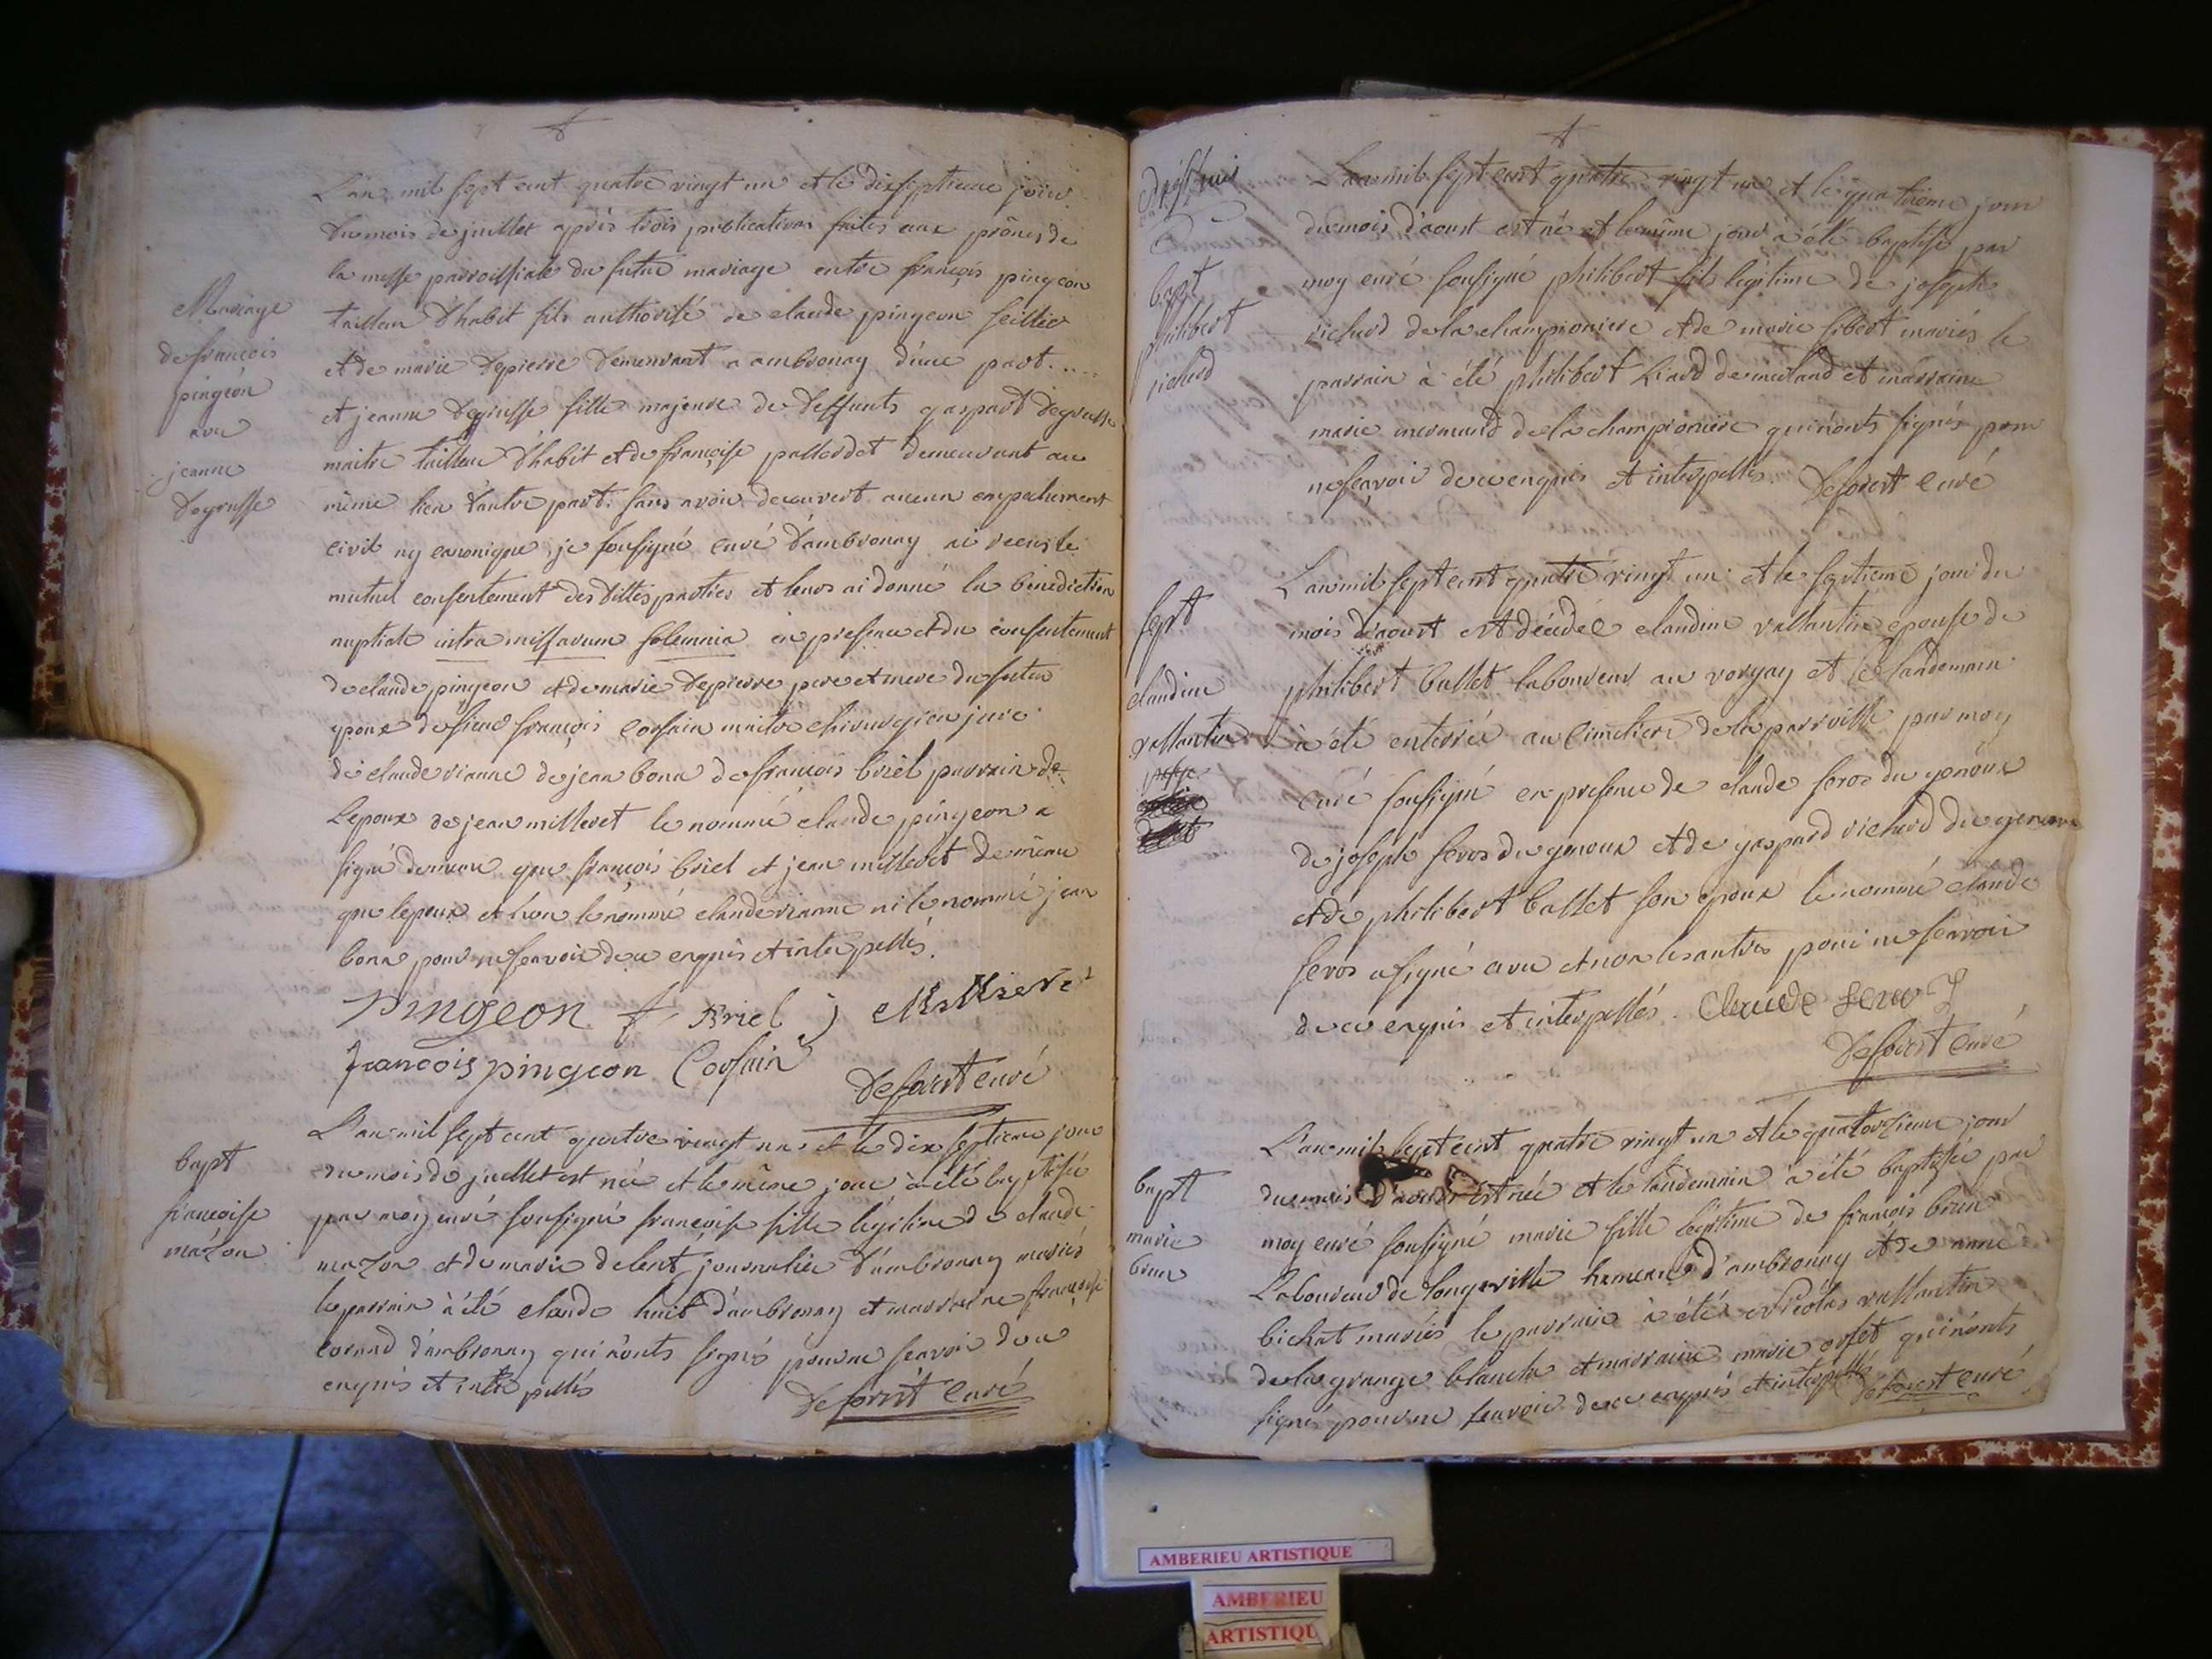 L'an mil sept cent quatre vingt un et le dixseptieme jour
du mois de juillet après trois publications faites aux prônes de
la messe parroissiale du futur mariage entre françois pingeon
tailleur d'habit fils authorisé de claude pingeon
et de marie depierre demeurant a ambronay d'une part....
et jeanne degrusse fille majeure de deffunts gaspard degrusse
maitre tailleur d'habit et de françoise demeurant au
même lieu d'autre part. sans avoir decouvert aucun empechement
civil ny canonique, je sousigné curé d'ambronay ai recus le
mutuel consentement des dittes parties et leurs ai donné la bénédiction
nuptiale intra missarum solemnia en presence et du consentement
de claude pingeon et de marie depierre pere et mere du futur
epoux de sieur françois Corsain maitre chirurgien juré
de claude vianne de jean bona de françois briel parrain de
L'epoux de jean milleret le nommé claude pingeon a
signé de meme que françois briel et jean milleret de même
que l'epoux et non le nommé claude vianne ni le nommé jean
bona pour ne scavoir de ce enquis et interpellés.
Mariage
de françois
pingeon
avec
jeanne
degrusse
pingeon f Briel j
francois pingeon Corsain
Deforest curé
L'an mil sept cent quatre vingt un et le dix septieme jour
du mois de juillet est née et le même jour à été baptisée
par moy curé sousigné françoise fille légitime de claude
mazon et de marie delent journalier d'ambronay mariés
le parrain à été claude huit d'ambronay et marraine françoise
cornad d'ambronay qui n'onts signés pour ne scavoir de ce
enquis et interpellés
Deforest Curé
bapt
francoise
mazon
L'an mil sept cent quatre vingt un et le quatrieme jour
du mois d'aoust est né et le même jour à été baptisé par
moy curé sousigné philibert fils légitime de joseph
richerd de la championiere et de marie sibert mariés le
parrain à été philibert et marraine
marie mermand de la championiere qui n'onts signés pour
ne scavoir de ce enquis et interpellés. Deforest Curé
bapt
philibert
richerd
L'an mil sept cent quatre vingt un et le septieme jour du
mois d'aoust est décédée claudine vallantin epouse de
philibert ballet laboureur au vorgay et le landemain
à été enterrée au Cimetiere de la parroisse par moy
curé sousigné en presence de claude seros du genoux
de joseph seros du genoux et de gaspard richerd du genoux
et de philibert ballet son epoux le nommé claude
seros a signé avec et non les autres pour ne scavoir
de ce enquis et interpellés. Claude
Deforest Curé
sept
claudine
vallantin
L'an mil sept cent quatre vingt un et le quatorzieme jour
du mois d'aoust est née et le landemain à été baptisée par
moy curé sousigné marie fille légitime de françois brun
Laboureur de longeville hameau d'ambronay et de anne
bichat mariés le parrain à été nicolas vallantin
de la grange blanche et marraine marie orset qui n'onts
signés pour ne scavoir de ce enquis et interpellés Deforest curé
bapt
marie
brun
AMBERIEU ARTISTIQUE
AMBERIEU
ARTISTIQU